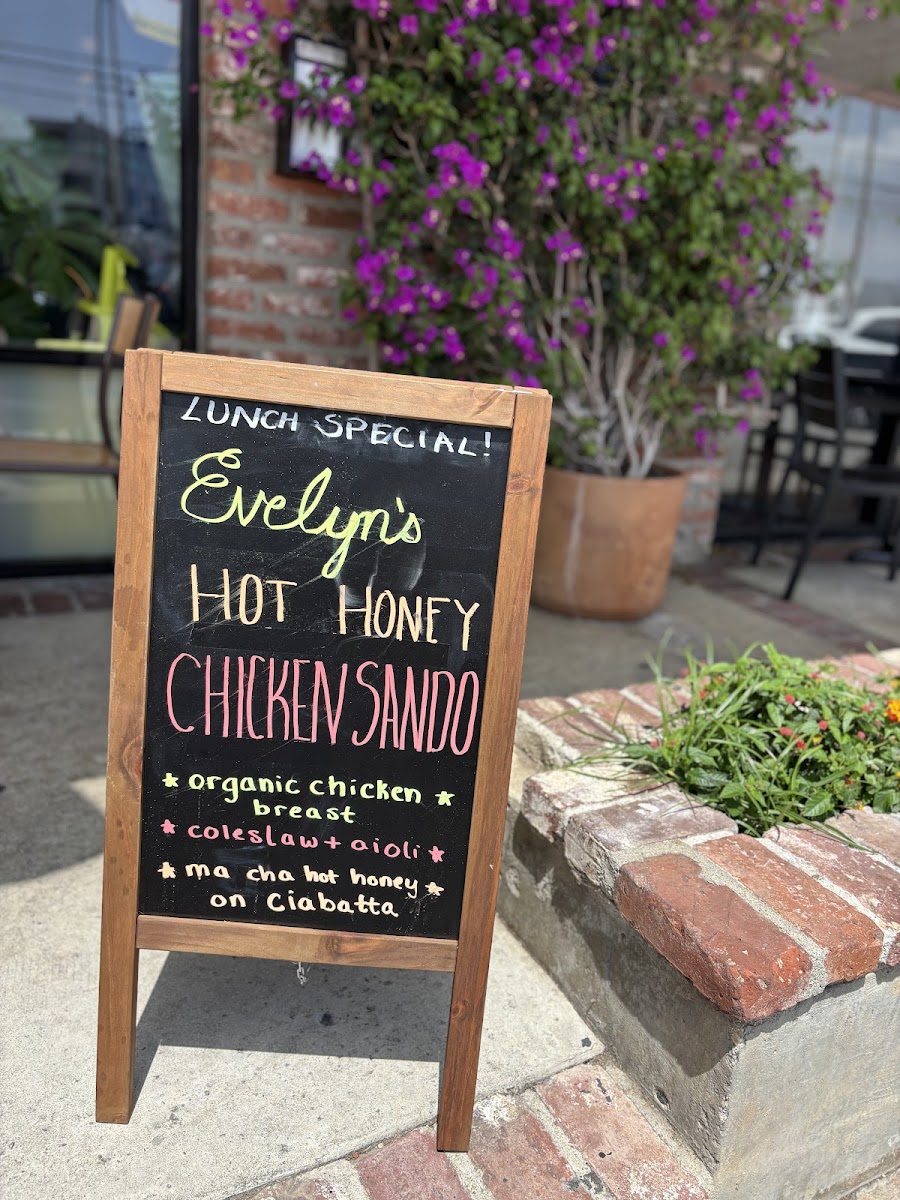 LUNCH SPECIAL!
Evelyn's
HOT HONEY
CHICKEN SANDO
* organic chicken *
breast
* coleslaw + aioli *
* ma cha hot honey *
on Ciabatta